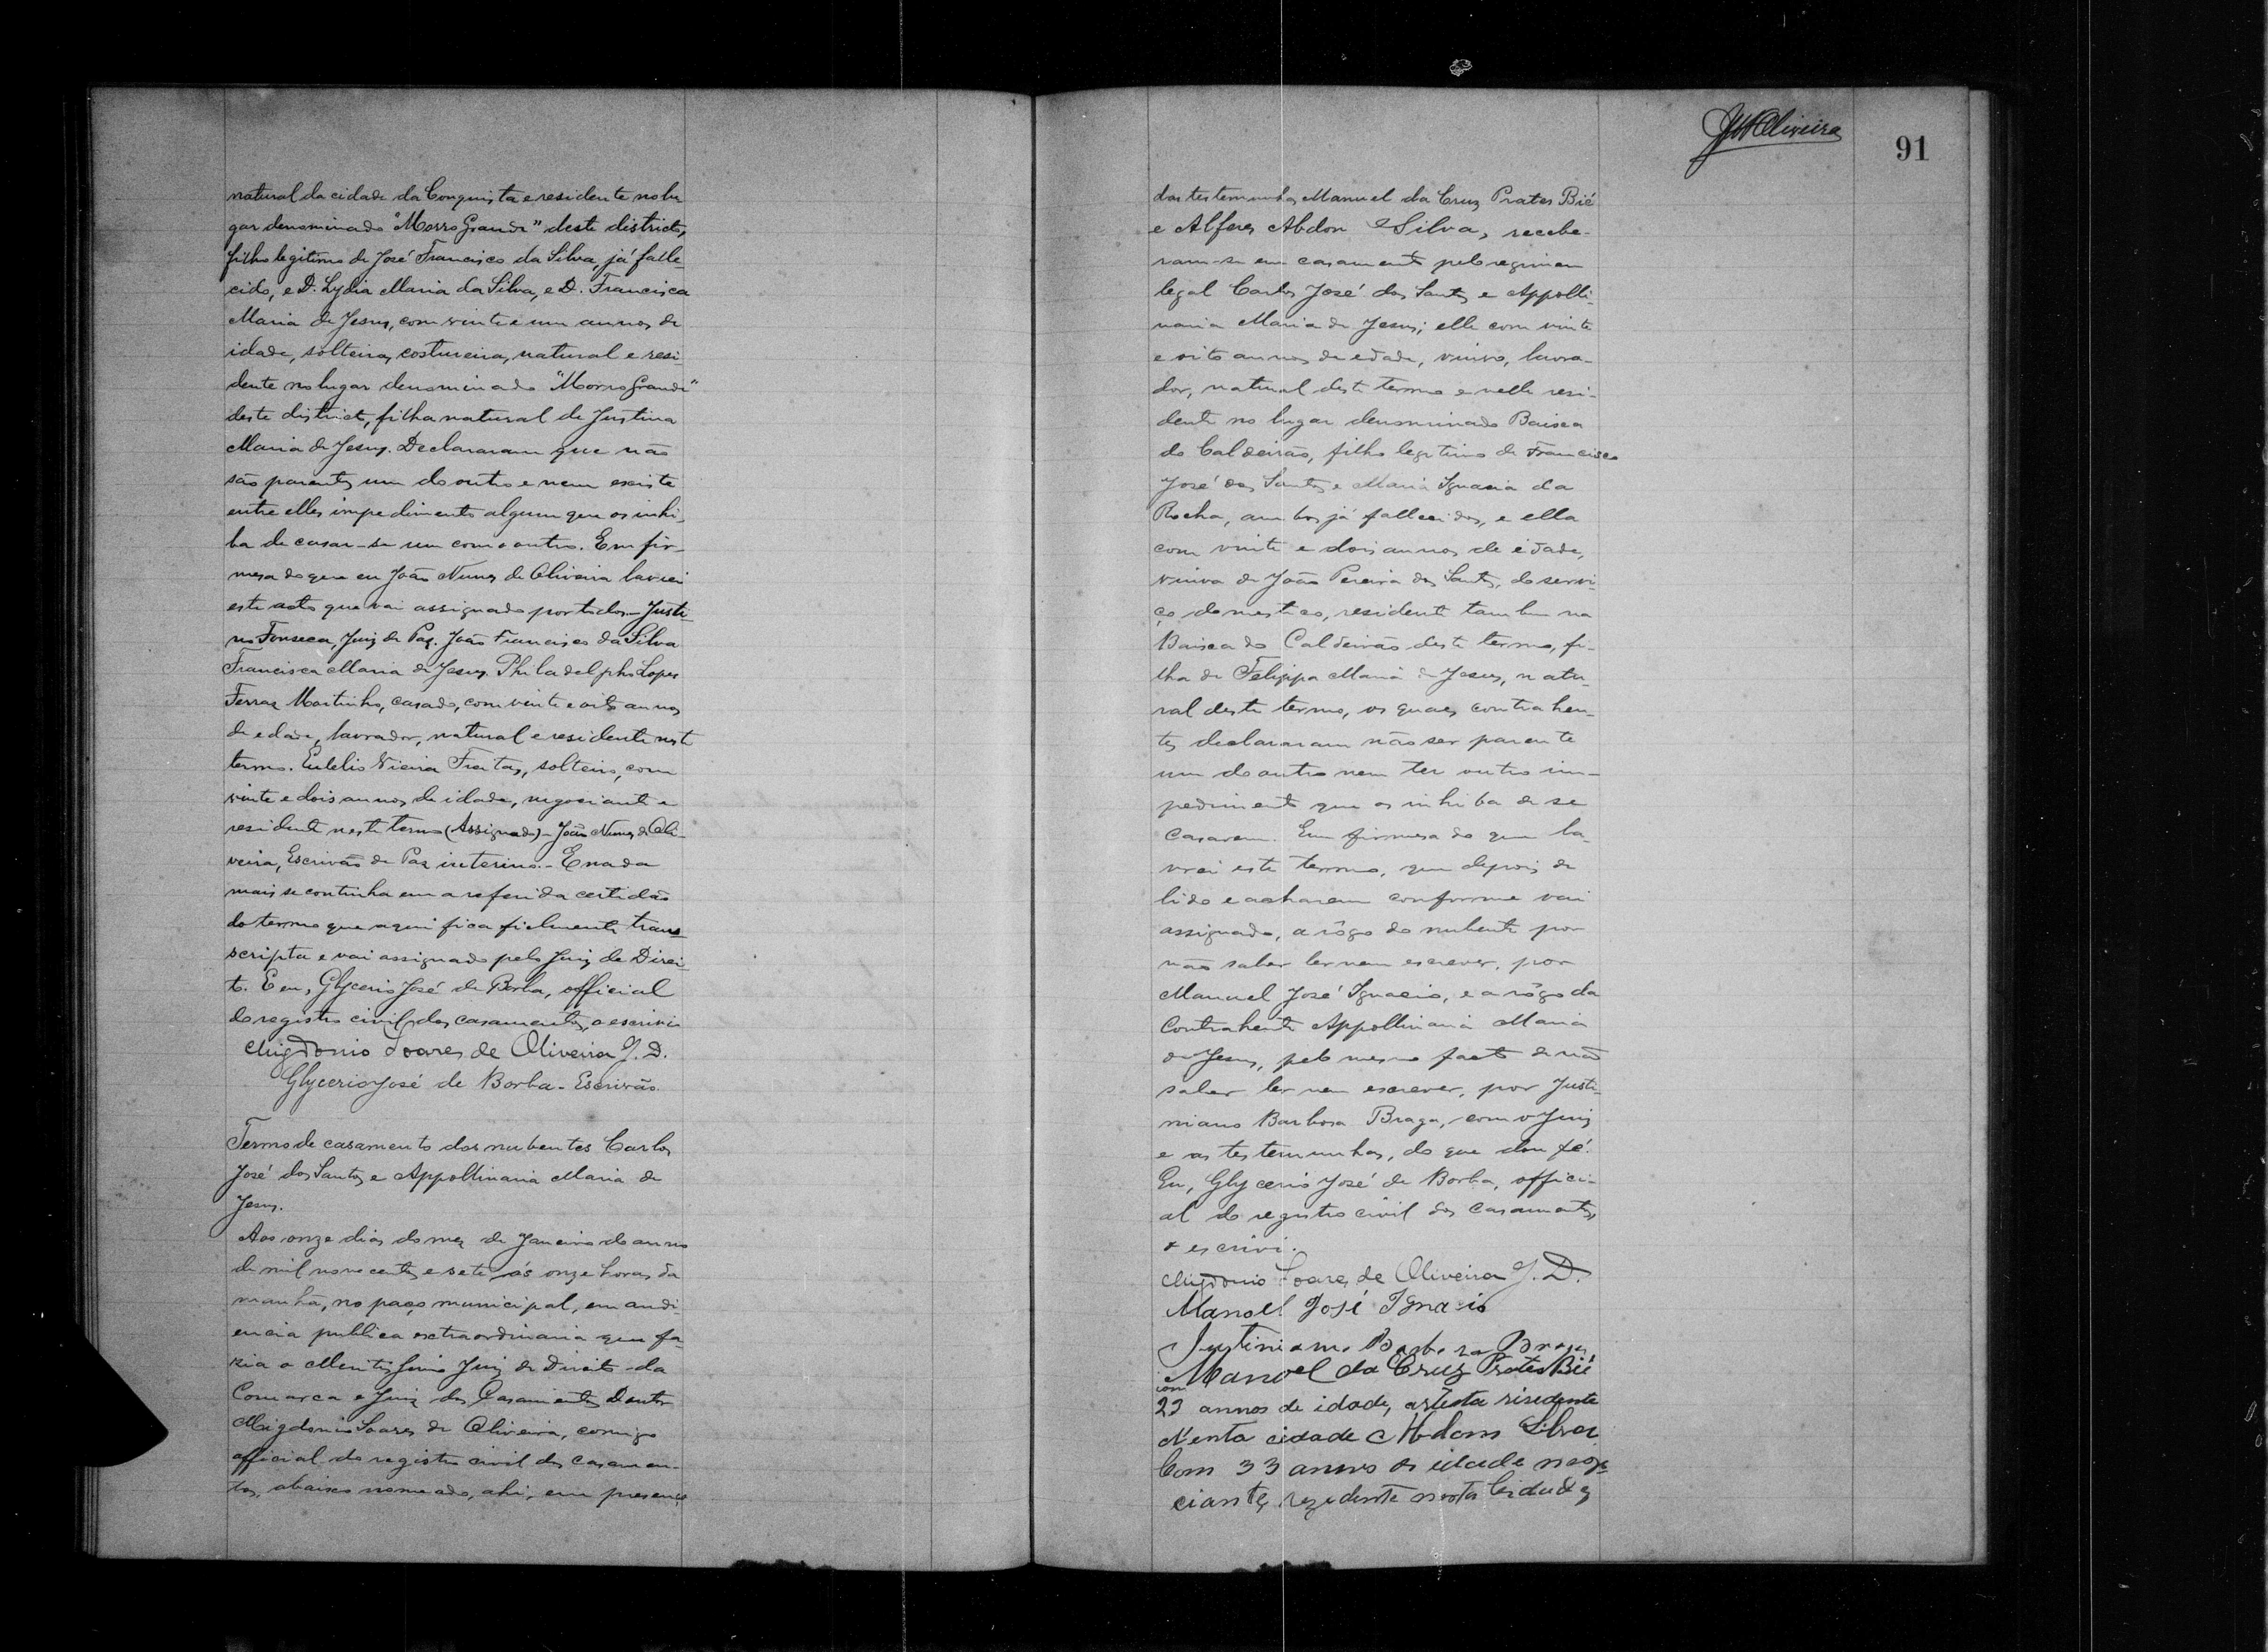 natural da cidade da Conquista e residente no lu
gar denominado "Morro Grande" deste districto,
filho legitimo de José Francisco da Silva, já falle-
cido, e D. Lydia Maria da Silva, e D. Francisca
Maria de Jesus, com vinte e um annos de
idade, solteira, costureira, natural e resi
dente no lugar denominado "Morro Grande"
deste district, filha natural de Justina
Maria de Jesus. Declararam que não
são parentes um do outro e nem existe
entre elles impedimento algum que os inhi-
ba de casar-se um com o outro. Em fir-
mesa do que eu João Nunes de Oliveira lavrei
este acto que vai assignado por todos.- Justi
no Fonseca, Juiz de Paz. João Francisco da Silva
Francisca Maria de Jesus. Philadelpho Lopes
Ferraz Martinho, casado, com vinte e oito annos
de edade, lavrador, natural e residente neste
termo. Vieira Freitas, solteiro, com
vinte e dois annos de idade, negociante e
residente neste termo (Assignado)- João Nunes de Oli-
veira, Escrivão de Paz interino.- E nada
mais se continha em a referida certidão
do termo que aqui fica fielmente trans
scripta e vai assignado pelo Juiz de Direi-
to. E eu, Glycerio José de Borba, official
do registro civil dos casamentos, o escrivi
Migdonio Soares de Oliveira J. D.
Glycerio José de Borba - Escrivão.
Termo de casamento dos nubentes Carlos
José dos Santos e Appollinaria Maria de
Jesus.
Aos onze dias do mez de Janeiro do anno
de mil novecentos e sete, ás onze horas da
manhã, no paço municipal, em audi-
encia publica extraordinaria que fa-
zia o Meritissimo Juiz de Direito da
Comarca e Juiz dos Casamentos Doutor
Migdonio Soares de Oliveira, comigo
official do registro civil dos casamen-
tos, abaixo nomeado, ahi, em presença
91
das testemunhas Manuel da Cruz Prates Bié
e Alferes Abdon Silva, recebe-
ram-se em casamento pelo regimen
legal Carlos José dos Santos e Appolli-
naria Maria de Jesus; elle com vinte
e oito annos de edade, viuvo, lavra-
dor, natural deste termo e nelle resi-
dente no lugar denominado Baixa
do Caldeirão, filho legitimo de Francisco
José dos Santos e Maria Ignacia da
Rocha, ambos já fallecidos, e ella
com vinte e dois annos de edade,
viuva de João Pereira dos Santos, do servi-
ço domestico, residente tambem na
Baixa do Caldeirão deste termo, fi-
lha de Felippa Maria de Jesus, natu-
ral deste termo, os quaes contrahen-
tes declararam não ser parente
um do outro nem ter outro im-
pedimento que os inhiba de se
casarem. Em firmesa do que la-
vrei este termo, que depois de
lido e acharem conforme vai
assignado, a rôgo do nubente por
não saber ler nem escrever, por
Manuel José Ignacio, e a rôgo da
contrahente Appollinaria Maria
de Jesus, pelo mesmo facto de não
saber ler nem escrever, por Justi-
niano Barbosa Braga, com o Juiz
e as testemunhas, do que dou fé.
Eu, Glycerio José de Borba, offici-
al do registro civil dos casamentos,
o escrivi.
Migdonio Soares de Oliveira J. D.
Manoel José Ignacio
Justiniano Barbosa Braga
Manoel da Cruz Prates Bié
com
23 annos de idade, artista risedente
Nenta cidade Abdom Silva
Com 33 annos de idade nego
ciante, rezedente nesta Cidade